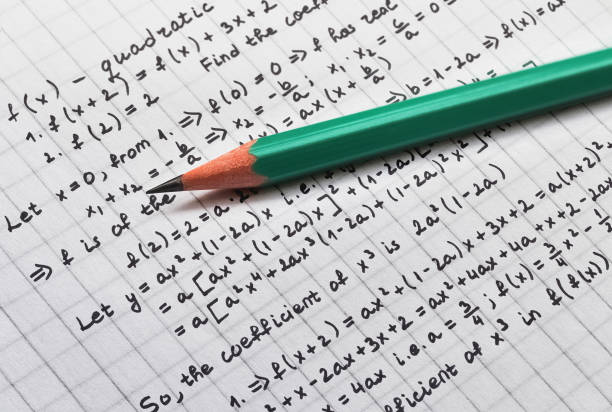 f(x) - quadratic
1. f(x+2) = f(x) + 3x + 2
2. f(2) = 2 Find the coeff
Let x=0, from 1. => f(0) = 0 => f has real
x₁ + x₂ = -b/a => x₂ = -b/a; x₁ · x₂ = c/a = 0 =
=> f is of the (x) = ax(x + b/a) => b = 1-2a => f(x) = a
f(2) = 2 = a·2
Let y = ax² + (1-2a)x i.e.
= a[ax² + (1-2a)x]² + (1-2a)[
= a[a²x⁴ + 2ax³(1-2a) + (1-2a)²x²] +
So, the coefficient of x³ is 2a²(1-2a)
1. => f(x+2) = ax² + (1-2a)x + 3x + 2 = a(x+2)² +
² + x - 2ax + 3x + 2 = ax² + 4ax + 4a + x + 2 - 2a
x = 4ax i.e. a = 3/4; f(x) = 3/4 x² - 1
efficient of x³ in f(f(x))